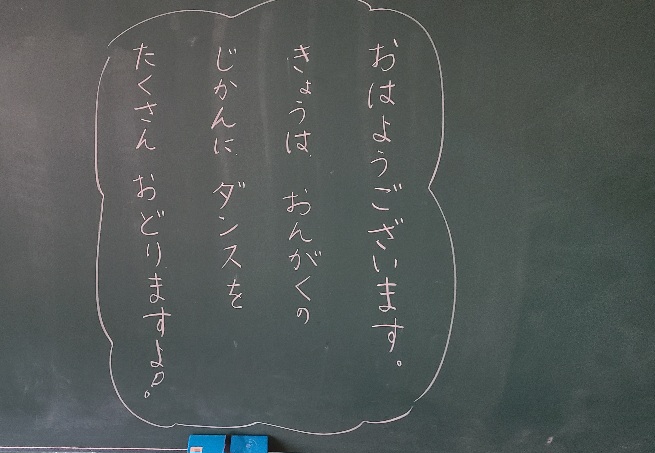 おはようございます。
きょうは おんがくの
じかんに ダンスを
たくさん おどりますよ!